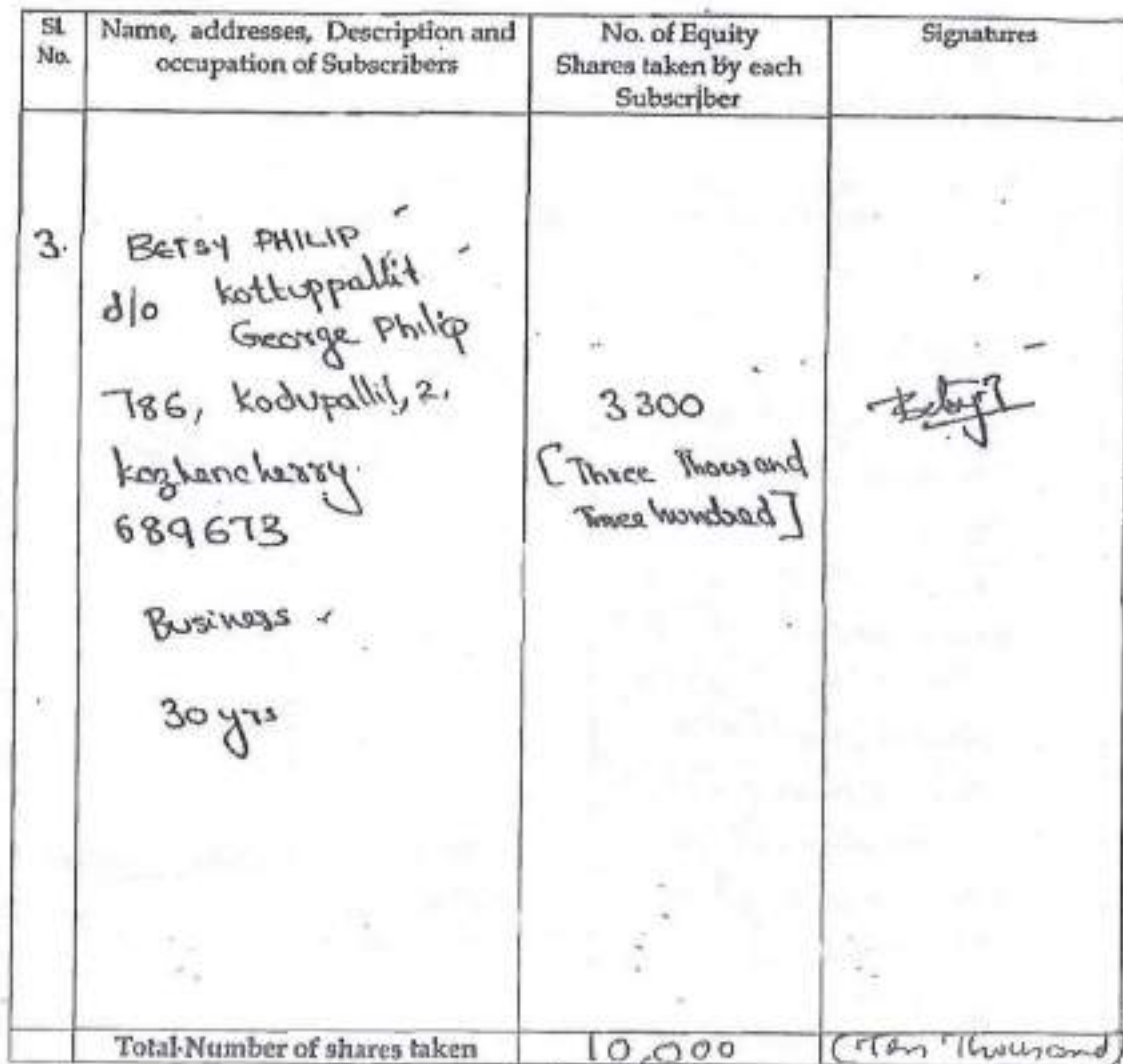 Sl. No.
Name, addresses, Description and occupation of Subscribers
No. of Equity Shares taken by each Subscriber
Signatures
3.
BETSY PHILIP
d/o Kottuppallit
George Philip
786, Kodupallil, 2,
Kozhencherry.
689673
Business
30 yrs
3300
[Three Thousand
Three hundred]
Total Number of shares taken
10,000
(Ten Thousand)